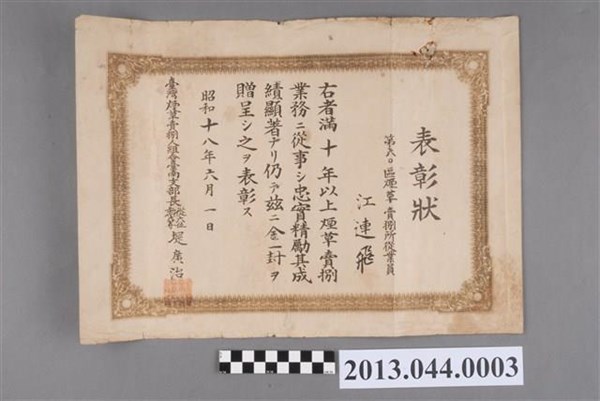 表彰狀
第六〇區煙草賣捌所從業員
江連飛
右者滿十年以上煙草賣捌
業務ニ從事シ忠實精勵其成
績顯著ナリ仍テ玆ニ金一封ヲ
贈呈シ之ヲ表彰ス
昭和十八年六月一日
臺灣煙草賣捌人組合臺南支部長 堤廣治
2013.044.0003